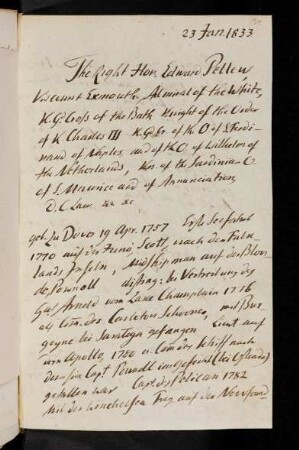 23 Jan 1833
The Right Hon. Edward Pellew,
Viscount Exmouth, Admiral of the White,
K. G. Cross of the Bath Knight of the Order
of K Charles III K. Gr. of the O of S. Ferdi-
nand of Naples and of the O. of Wilhelm of
the Netherlands, Kn. of the Sardinian O
of S. Maurice and of Annunciation,
D. C Law &c &c
geb. zu Dover 19 Apr. 1757 Erste Seefahrt
1770 auf der Juno, Scott, nach den Falk-
lands Inseln, Midshipman auf der Blon-
de Pownall disting. bei Vertreibung des
Gen Arnold vom Lake Champlain 1776
als Com. des Carleton Schooner, mit Bur
goyne bei Saratoga gefangen Lieut auf
dem Apollo, 1780 u. Com des Schiffs nach
dem sein Capt Pownall (bei Ostende)
gefallen war Capt des Pelican 1782
Mit der Winchelsea Freg auf der Newfound